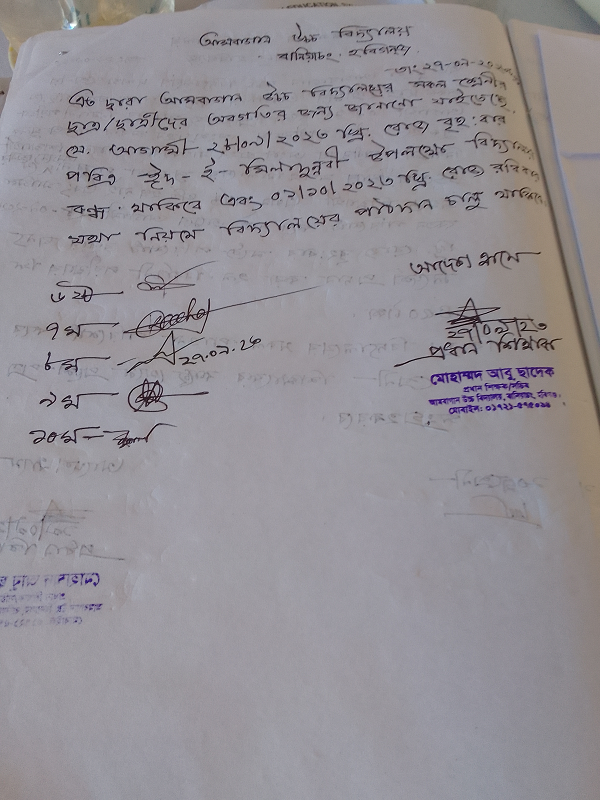 আমবাগান উচ্চ বিদ্যালয়
বানিয়াচং, হবিগঞ্জ।
তাং ২৭-০৯-২০২৩
এত দ্বারা আমবাগান উচ্চ বিদ্যালয়ের সকল শ্রেণীর
ছাত্র/ছাত্রীদের অবগতির জন্য জানানো যাইতেছে
যে, আগামী ২৮/০৯/২০২৩ খ্রি. রোজ বৃহ:বার
পবিত্র ঈদ-ই-মিলাদুন্নবী উপলক্ষে বিদ্যালয়
বন্ধ থাকিবে এবং ০১/১০/২০২৩ খ্রি. রোজ রবিবার
যথা নিয়মে বিদ্যালয়ের পাঠদান চালু থাকিবে
আদেশ ক্রমে
৬ষ্ঠ
৭ম
৮ম ২৭.০৯.২৩
৯ম
১০ম
২৭/০৯/২৩
প্রধান শিক্ষক
মোহাম্মদ আবু ছাদেক
প্রধান শিক্ষক/সচিব
আমবাগান উচ্চ বিদ্যালয়, বানিয়াচং, হবিগঞ্জ।
মোবাইল: ০১৭২১-৫৭৫০৯৯